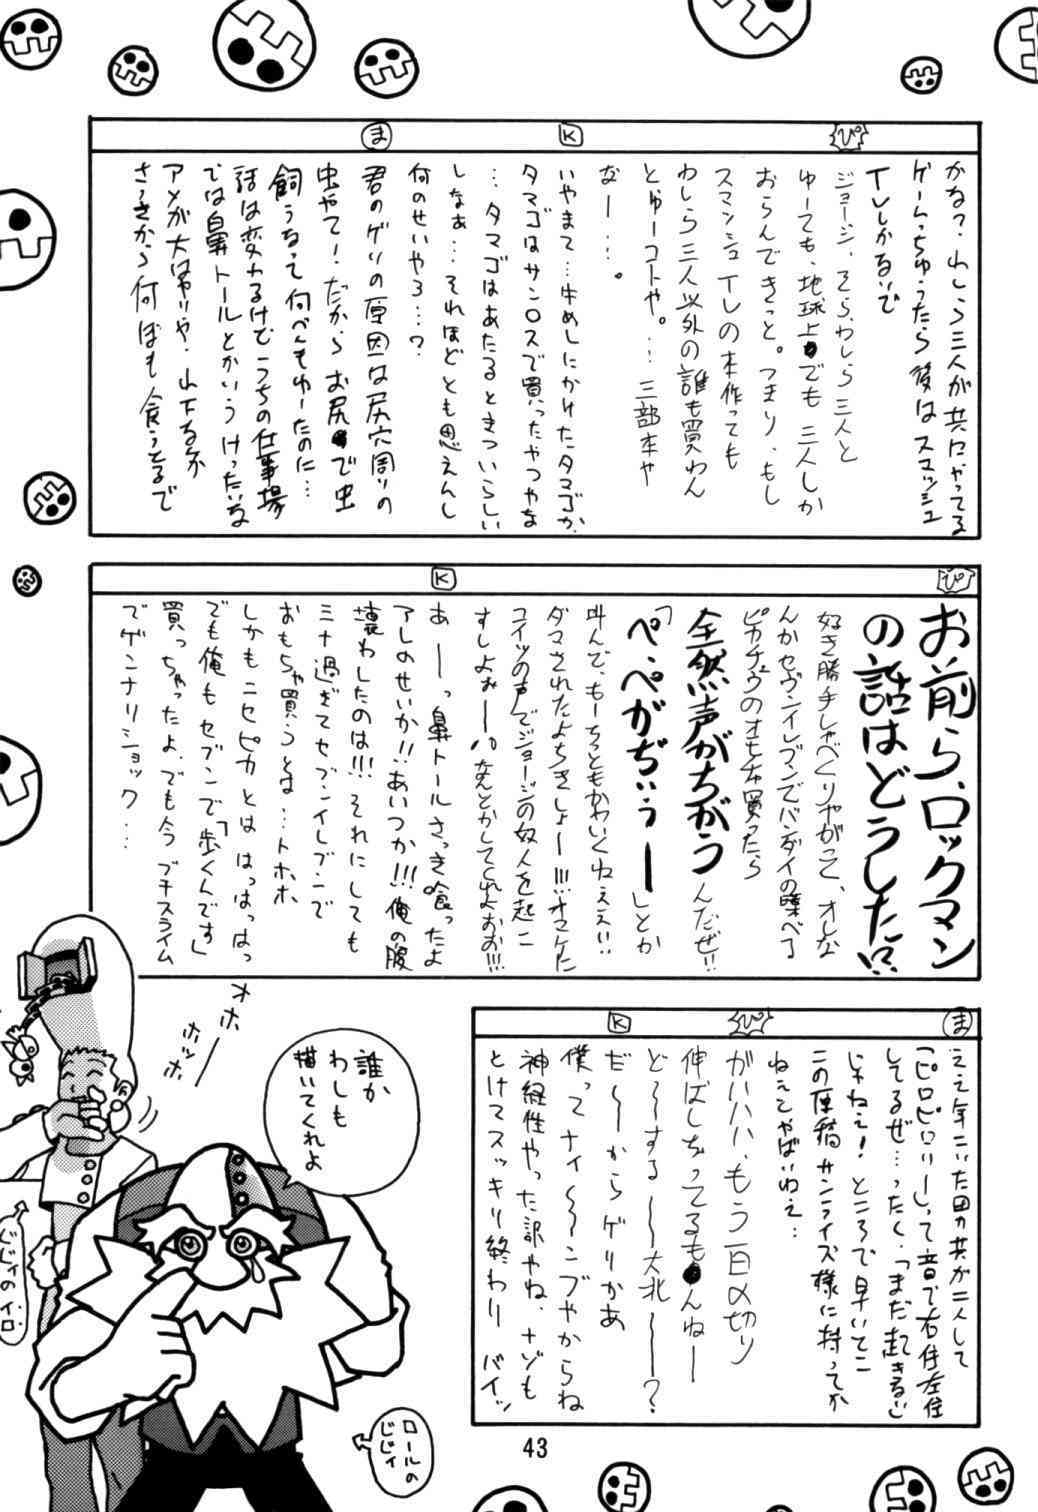 ぴ
かな?わしら三人が共にやってる
ゲームっちゅうたら後はスマッシュ
TVしかないで
ジョージ、そら、わしら三人と
ゆーても、地球上でも三人しか
おらんできっと。つまり、もし
スマッシュTVの本作っても
わしら三人以外の誰も買わん
とゆーコトや。…三部本や
なー…。
K
いやまて…牛めしにかけたタマゴか、
タマゴはサンロスで買ったやつやな
…タマゴはあたるときついらしい
しなぁ…それほどとも思えんし
何のせいやろ…?
ま
君のゲリの原因は尻穴周りの
虫やて!だからお尻で虫
飼うなって何べんもゆーたのに…
話は変わるけどうちの仕事場
では鼻トールとかいうけったいな
アメが大はやりや、山下るか
さっきから何ぼも食うてるで
ぴ
お前ら、ロックマン
の話はどうした!?
好き勝手しゃべくりやがって、オレな
んかセヴンイレブンでバンダイの喋べる
ピカチュウのオモチャ買ったら
全然声がちがう
んだぜ!!
「ペ、ペがぢぃぅー」とか
叫んで、もーちっともかわいくねぇぇ!!
ダマされたよちきしょー!!!オマケに
コイツの声でジョージの奴人を起こ
すしよぉーハなんとかしてくれよおお!!!
K
あーーっ鼻トールさっき喰ったよ
アレのせいか!!あいつか!!!俺の腹
壊わしたのは!!!それにしても
ミナ過ぎてセブンイレブンで
おもちゃ買うとは…トホホ
しかもニセピカとははっはっはっ
でも俺もセブンで「歩くんです」
買っちゃったよ、でも今プチスライム
でゲンナリショック…
ま
ええ年こいた田力共が二人して
「ピロピロリー」って音で右往左往
してるぜ…ったく、「まだ起きるな」
じゃねえ!ところで早いてこ
この原稿サンライズ様に持ってか
ねぇとやばいねえ…
ぴ
がハハハ、もう一日〆切り
伸ばしちってるもんねー
ど〜〜する〜〜大北〜〜?
K
だ〜〜からゲリかあ
僕ってナイ〜〜ンブやからね
神経性やった訳やね、ナゾも
とけてスッキリ終わりバイッ
オホーー
ホッホ
誰か
わしも
描いてくれよ
じじィのイロ
ロールの
じじィ
43